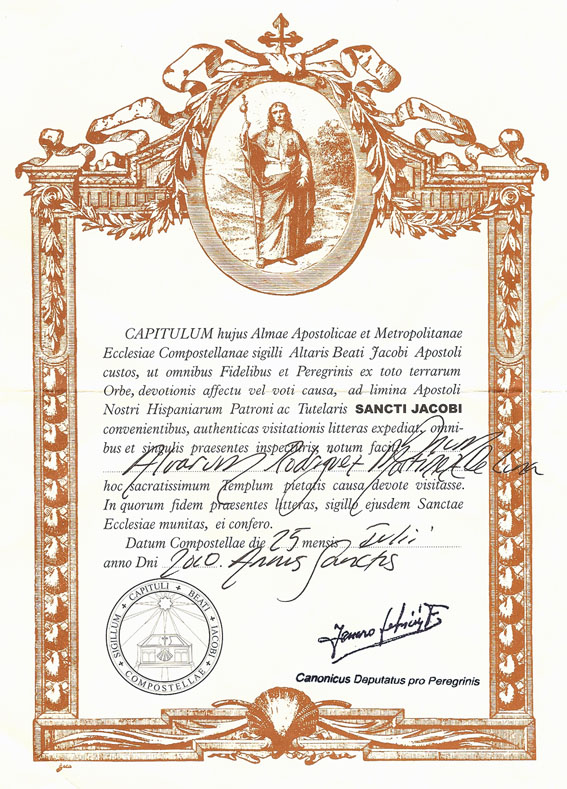 CAPITULUM hujus Almae Apostolicae et Metropolitanae
Ecclesiae Compostellanae sigilli Altaris Beati Jacobi Apostoli
custos, ut omnibus Fidelibus et Peregrinis ex toto terrarum
Orbe, devotionis affectu vel voti causa, ad limina Apostoli
Nostri Hispaniarum Patroni ac Tutelaris SANCTI JACOBI
convenientibus, authenticas visitationis litteras expediat, omni-
bus et singulis praesentes inspecturis, notum facit:
Alvarum Rodriguez Martinez De Luna
hoc sacratissimum Templum pietatis causa devote visitasse.
In quorum fidem praesentes litteras, sigillo ejusdem Sanctae
Ecclesiae munitas, ei confero.
Datum Compostellae die 25 mensis Iulii
anno Dni 2010. Annus Sanctus
SIGILLUM + CAPITULI + BEATI + JACOBI + COMPOSTELLAE +
Canonicus Deputatus pro Peregrinis